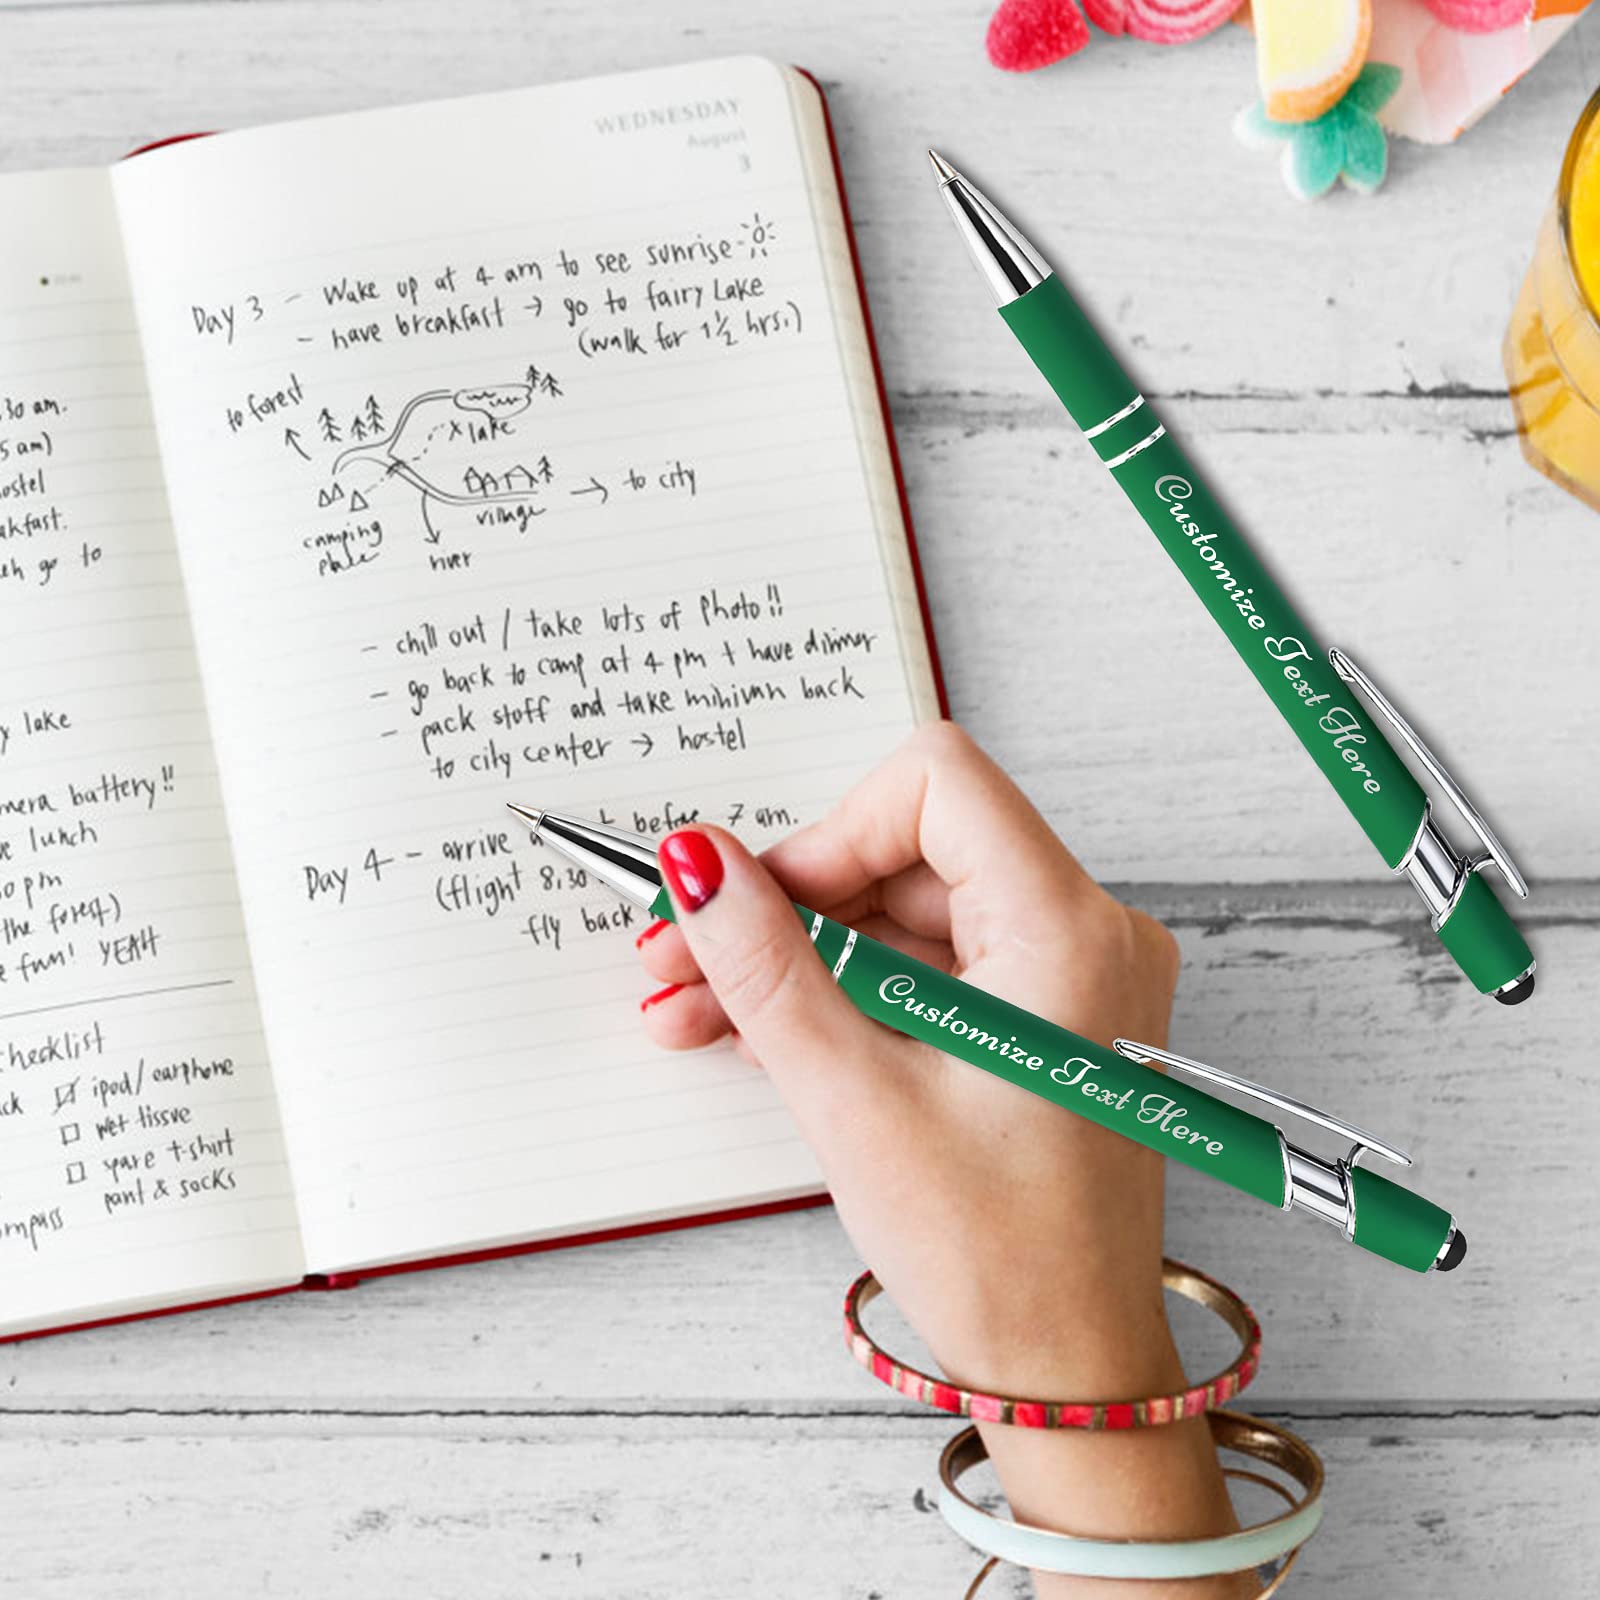 WEDNESDAY
August
3
Day 3 - Wake up at 4 am to see sunrise
- have breakfast → go to fairy Lake
(walk for 1 1/2 hrs.)
to forest
x lake
camping
village
→ to city
river
- chill out / take lots of photo!!
- go back to camp at 4 pm + have dinner
- pack stuff and take minivan back
to city center → hostel
Day 4 - arrive before 7 am.
(flight 8,30
fly back
30 am.
5 am)
ostel
akfast.
go to
y lake
mera battery!!
e lunch
0 pm
the forest)
e fun! YEAH
hecklist
ck ☑ ipod/earphone
☐ wet tissue
☐ spare t-shirt
pant & socks
ompass
Customize Text Here
Customize Text Here